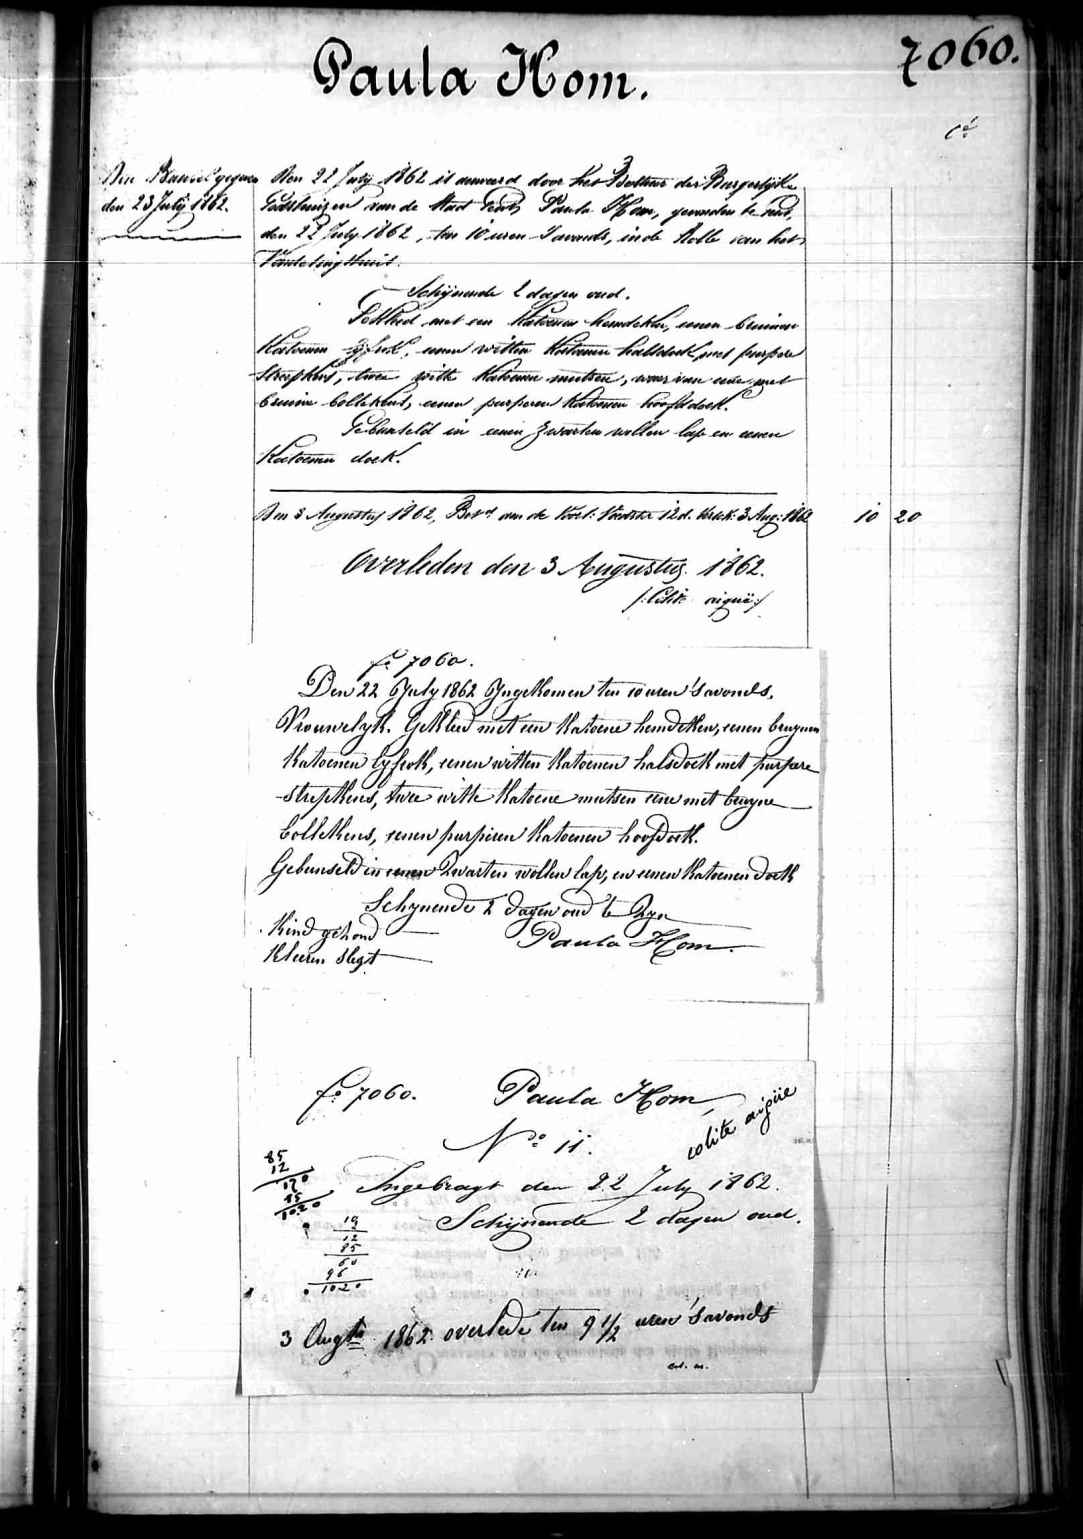 Paula Hom.
7060.
den 23 July 1862.
Den 22 July 1862 is aenveerd door het Bestuur der Burgerlyke
Godshuizen van de Stad Gent, Paula Hom, gevonden te Gent,
den 22 July 1862, ten 10 uren s'avonds, in de Rolle van het
Vondelingshuis.
Schijnende 2 dagen oud.
Gekleed met een Katoenen hemdeken, eenen bruinen
Katoenen lyfrok, eenen witten Katoenen halsdoek met purpere
Streepkens, twee witte Katoenen mutsen, waarvan eene met
bruine bollekens, eenen purperen Katoenen hoofddoek.
Gebunseld in eenen zwarten wollen lap en eenen
Katoenen doek.
Den 8 Augusty 1862, aan de 12 d. 3 Aug: 1862 10 20
Overleden den 3 Augustus 1862.
/: aiguë :/
f° 7060.
Den 22 July 1862 Yngekomen ten 10 uren 'savonds,
Vrouwelyk. Gekleed met een Katoene hemdeken, eenen bruynen
Katoenen lyfrok, eenen witten Katoenen halsdoek met purpere
strepkens, twee witte Katoene mutsen eene met bruyne
bollekens, eenen purpieren Katoenen hoofdoek.
Gebunseld in eenen Zwarten wollen lap, en eenen Katoenen doek
Schynende 2 dagen oud te Zyn
Kind gezond
Paula Hom.
Kleeren slegt
f° 7060. Paula Hom,
colite aigüe
N° 11.
85
12
170
85
1020
Ingebragt den 22 July 1862.
Schijnende 2 dagen oud.
12
85
60
96
1020
3 Augts 1862 overlede ten 9 1/2 uren 'savonds